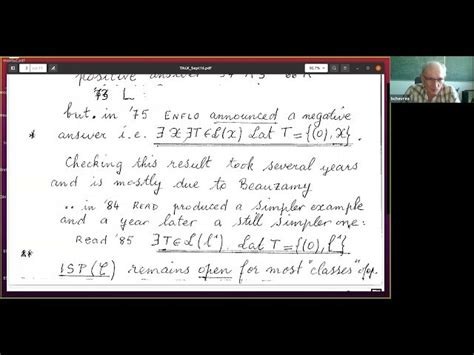 TALK_Sept14.pdf
positive answer
73 L:
but. in '75 ENFLO announced a negative
* answer i.e. ∃ X ∃T∈ℒ(X) Lat T = {(0), X}.
Checking this result took several years
and is mostly due to Beauzamy
.. in '84 READ produced a simpler example
and a year later a still simpler one:
Read '85 ∃T∈ℒ(l¹). Lat T = {(0), l¹}
** ISP(C) remains open for most "classes" of op.